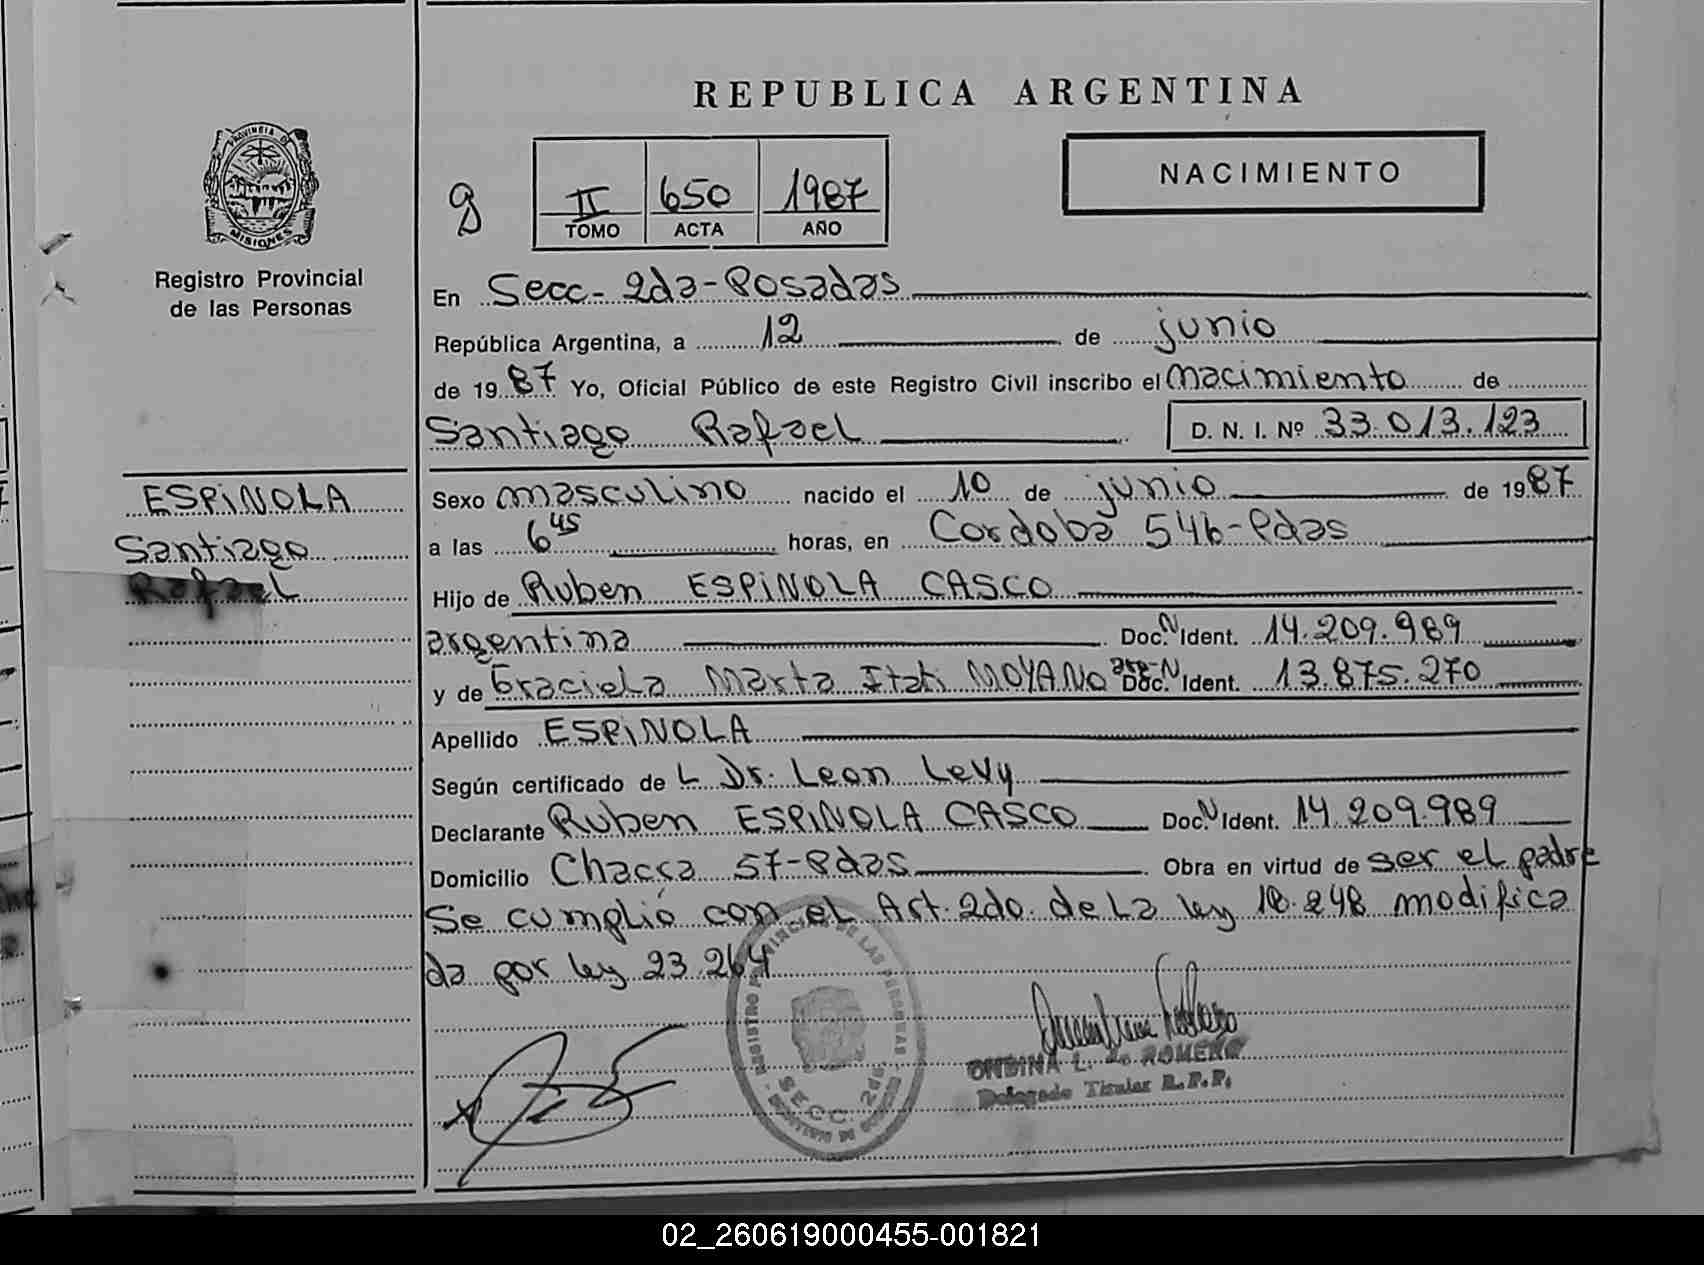 REPUBLICA ARGENTINA
PROVINCIA DE
MISIONES
Registro Provincial
de las Personas
II 650 1987
TOMO ACTA AÑO
NACIMIENTO
En Secc- 2da-Posadas
República Argentina, a 12 de junio
de 1987 Yo, Oficial Público de este Registro Civil inscribo el nacimiento de
Santiago Rafael D. N. I. Nº 33.013.123
ESPiNOLA
Santiago
Rafael
Sexo masculino nacido el 10 de junio de 1987
a las 6 45 horas, en Cordoba 546-Pdas
Hijo de Ruben ESPiNOLA CASCO
argentina Doc. N Ident. 14.209.989
y de Graciela Marta Itati MOYANO arg- Doc. N Ident. 13.875.270
Apellido ESPiNOLA
Según certificado de L Dr. Leon Levy
Declarante Ruben ESPiNOLA CASCO Doc. N Ident. 14.209.989
Domicilio Chacra 57-Pdas Obra en virtud de ser el padre
Se cumplió con el Art. 2do. de La ley 18.248 modifica
da por ley 23.264
REGISTRO PROVINCIAL DE LAS PERSONAS
SECC. 2da
MINISTERIO DE GOBIERNO
ONDINA L. de ROMERO
Delegado Titular R.P.P.
02_260619000455-001821